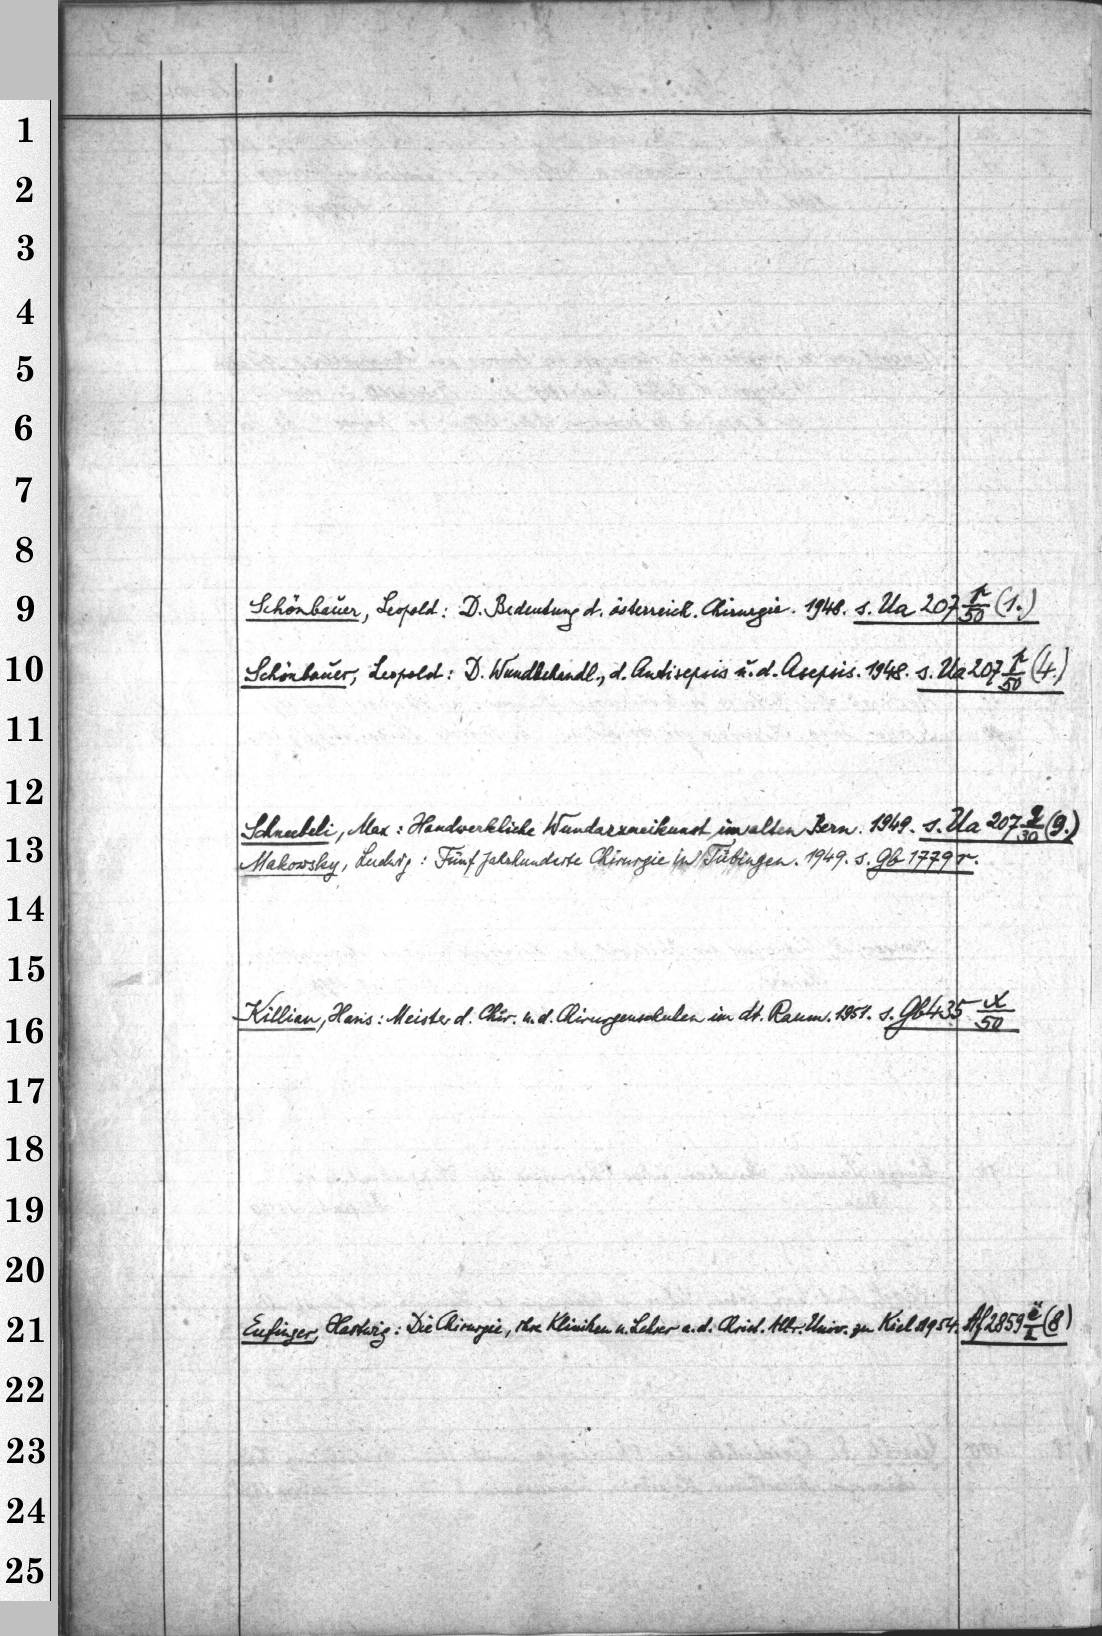 1
2
3
4
5
6
7
8
9 Schönbauer, Leopold: D. Bedeutung d. österreich. Chirurgie. 1948. s. Ua 207 r/50 (1.)
10 Schönbauer, Leopold: D. Wundbehandl., d. Antisepsis u. d. Asepsis. 1948. s. Ua 207 r/50 (4.)
11
12
Schneebeli, Max: Handwerkliche Wundarzneikunst im alten Bern. 1949. s. Ua 207 /30 (9.)
13 Makowsky, Ludwig: Fünf Jahrhunderte Chirurgie in Tübingen. 1949. s. Gb 1779 r.
14
15
16 Killian, Hans: Meister d. Chir. u. d. Chirurgenschulen im dt. Raum. 1951. s. Gb 435 x/50
17
18
19
20
21 Eufinger, Hartwig: Die Chirurgie, ihre Kliniken u. Lehrer a. d. Christ. Albr. Univ. zu Kiel 1954. Af 2859 (8)
22
23
24
25